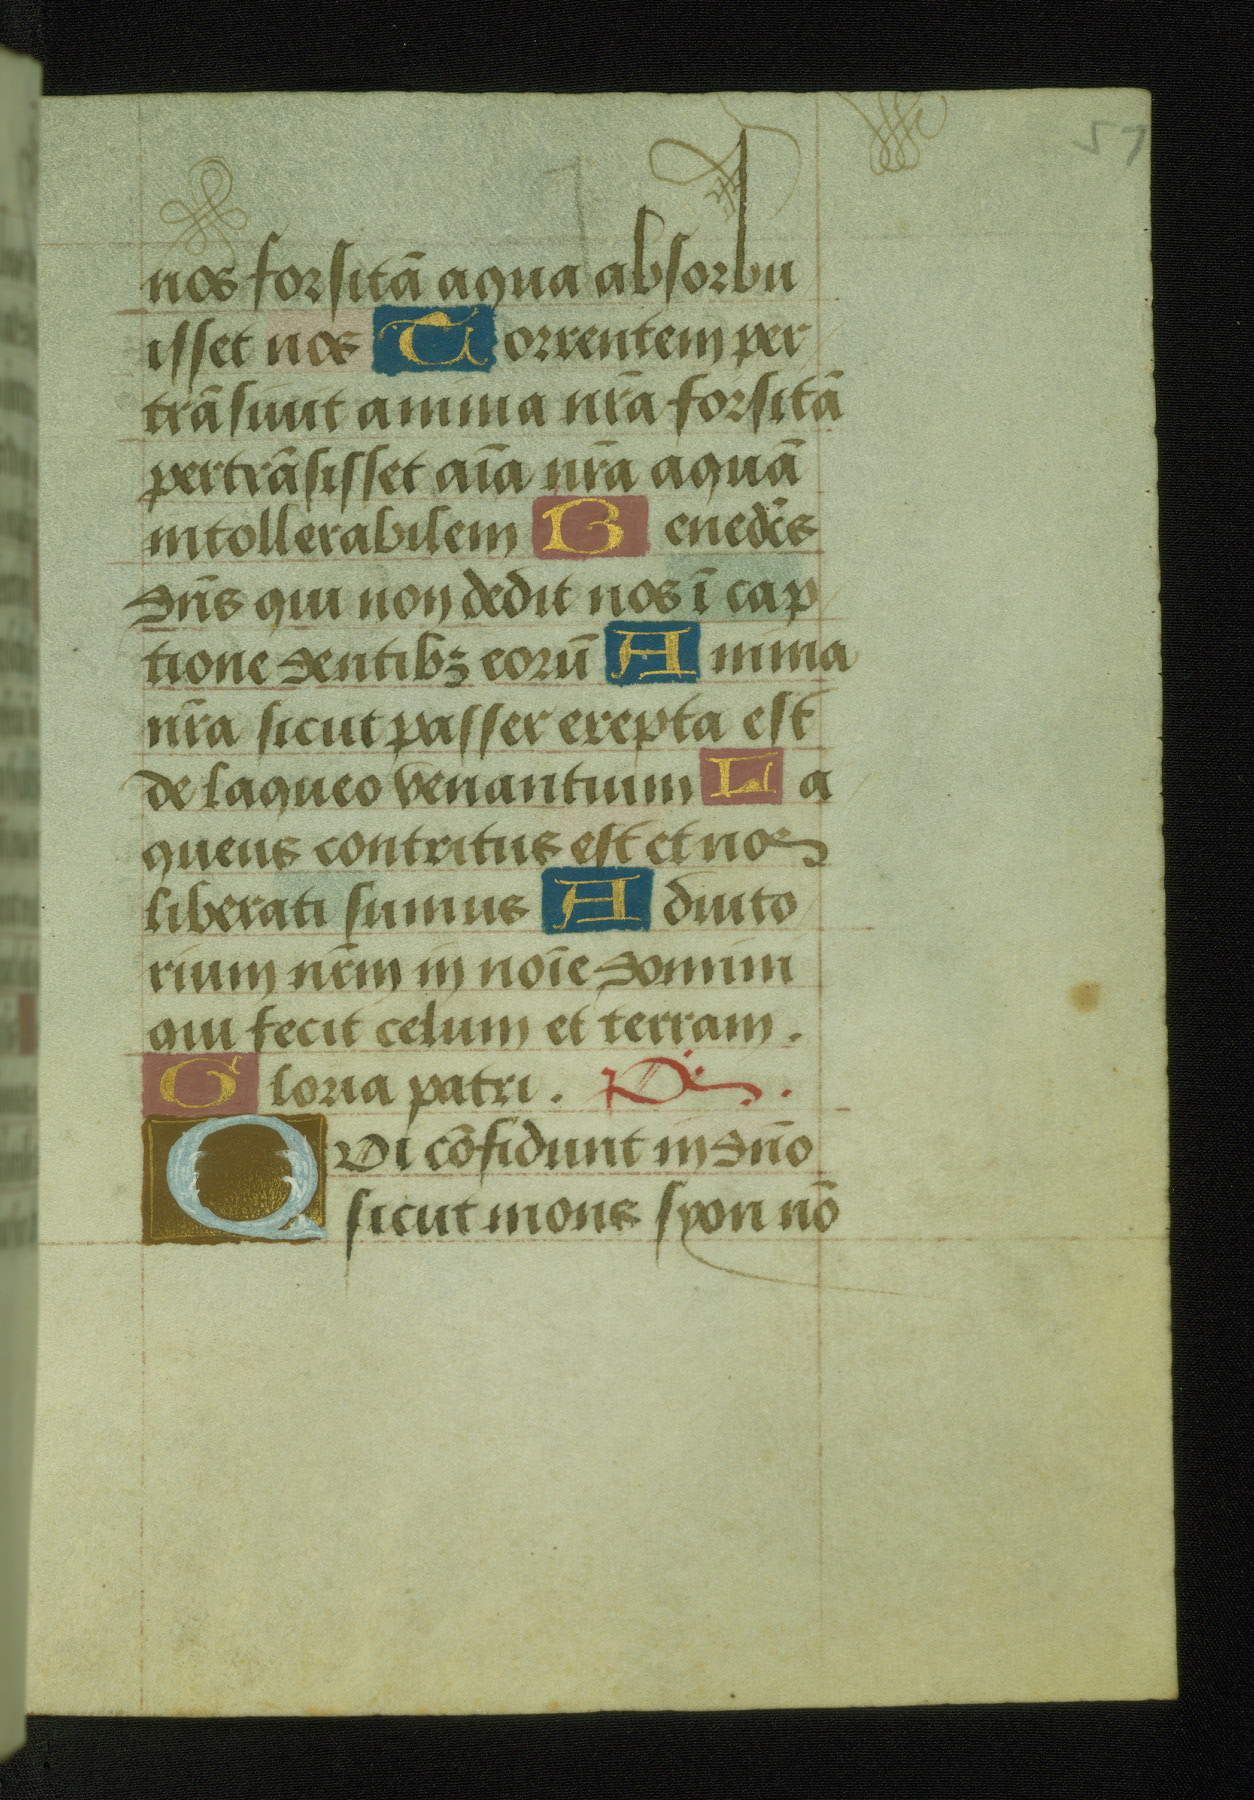 57
nos forsitā aqua absorbu
isset nos Torrentem per
trāsiuit anima nr̄a forsitā
pertrāsisset aīa nr̄a aquā
intollerabilem Benedc̄s
dn̄s qui non dedit nos ī cap
tione dentibꝫ eorū Anima
nr̄a sicut passer erepta est
de laqueo venantium La
queus contritus est et nos
liberati sumus Adiuto
rium nr̄m in noīe domini
qui fecit celum et terram .
Gloria patri . Ps .
QVi cōfidunt in dn̄o
sicut mons syon nō